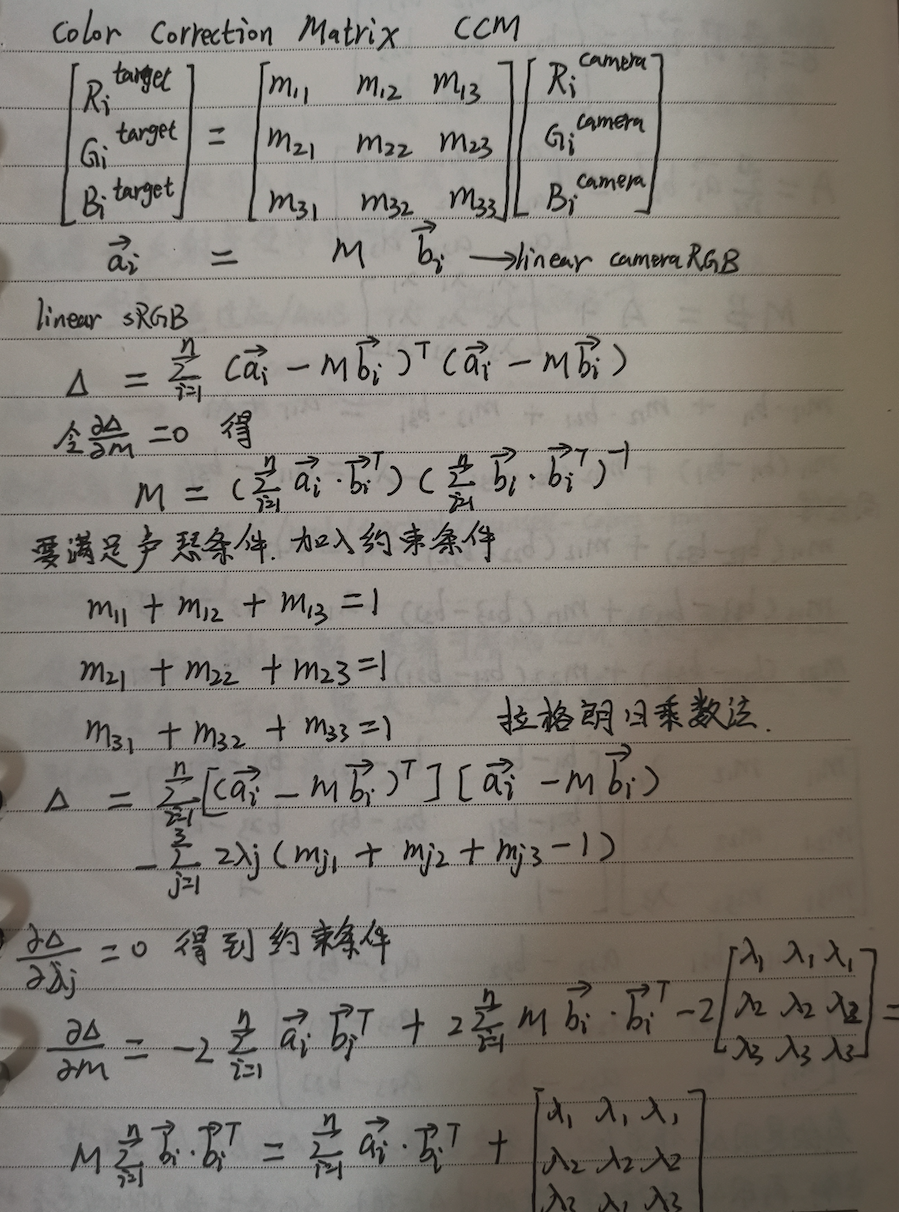 Color Correction Matrix CCM
[R_i^target; G_i^target; B_i^target] = [m_11 m_12 m_13; m_21 m_22 m_23; m_31 m_32 m_33] [R_i^camera; G_i^camera; B_i^camera]
a⃗_i = M b⃗_i → linear camera RGB
linear sRGB
Δ = Σ_{i=1}^n (a⃗_i − M b⃗_i)^T (a⃗_i − M b⃗_i)
令 ∂Δ/∂M = 0 得
M = (Σ_{i=1}^n a⃗_i · b⃗_i^T) (Σ_{i=1}^n b⃗_i · b⃗_i^T)^{-1}
要满足条件. 加入约束条件
m_11 + m_12 + m_13 = 1
m_21 + m_22 + m_23 = 1
m_31 + m_32 + m_33 = 1 拉格朗日乘数法.
Δ = Σ_{i=1}^n [(a⃗_i − M b⃗_i)^T] [a⃗_i − M b⃗_i)
− Σ_{j=1}^3 2λ_j (m_j1 + m_j2 + m_j3 − 1)
∂Δ/∂λ_j = 0 得到约束条件
∂Δ/∂M = −2 Σ_{i=1}^n a⃗_i b⃗_i^T + 2 Σ_{i=1}^n M b⃗_i · b⃗_i^T − 2 [λ_1 λ_1 λ_1; λ_2 λ_2 λ_2; λ_3 λ_3 λ_3] =
M Σ_{i=1}^n b⃗_i · b⃗_i^T = Σ_{i=1}^n a⃗_i · b⃗_i^T + [λ_1 λ_1 λ_1; λ_2 λ_2 λ_2; λ_3 λ_3]